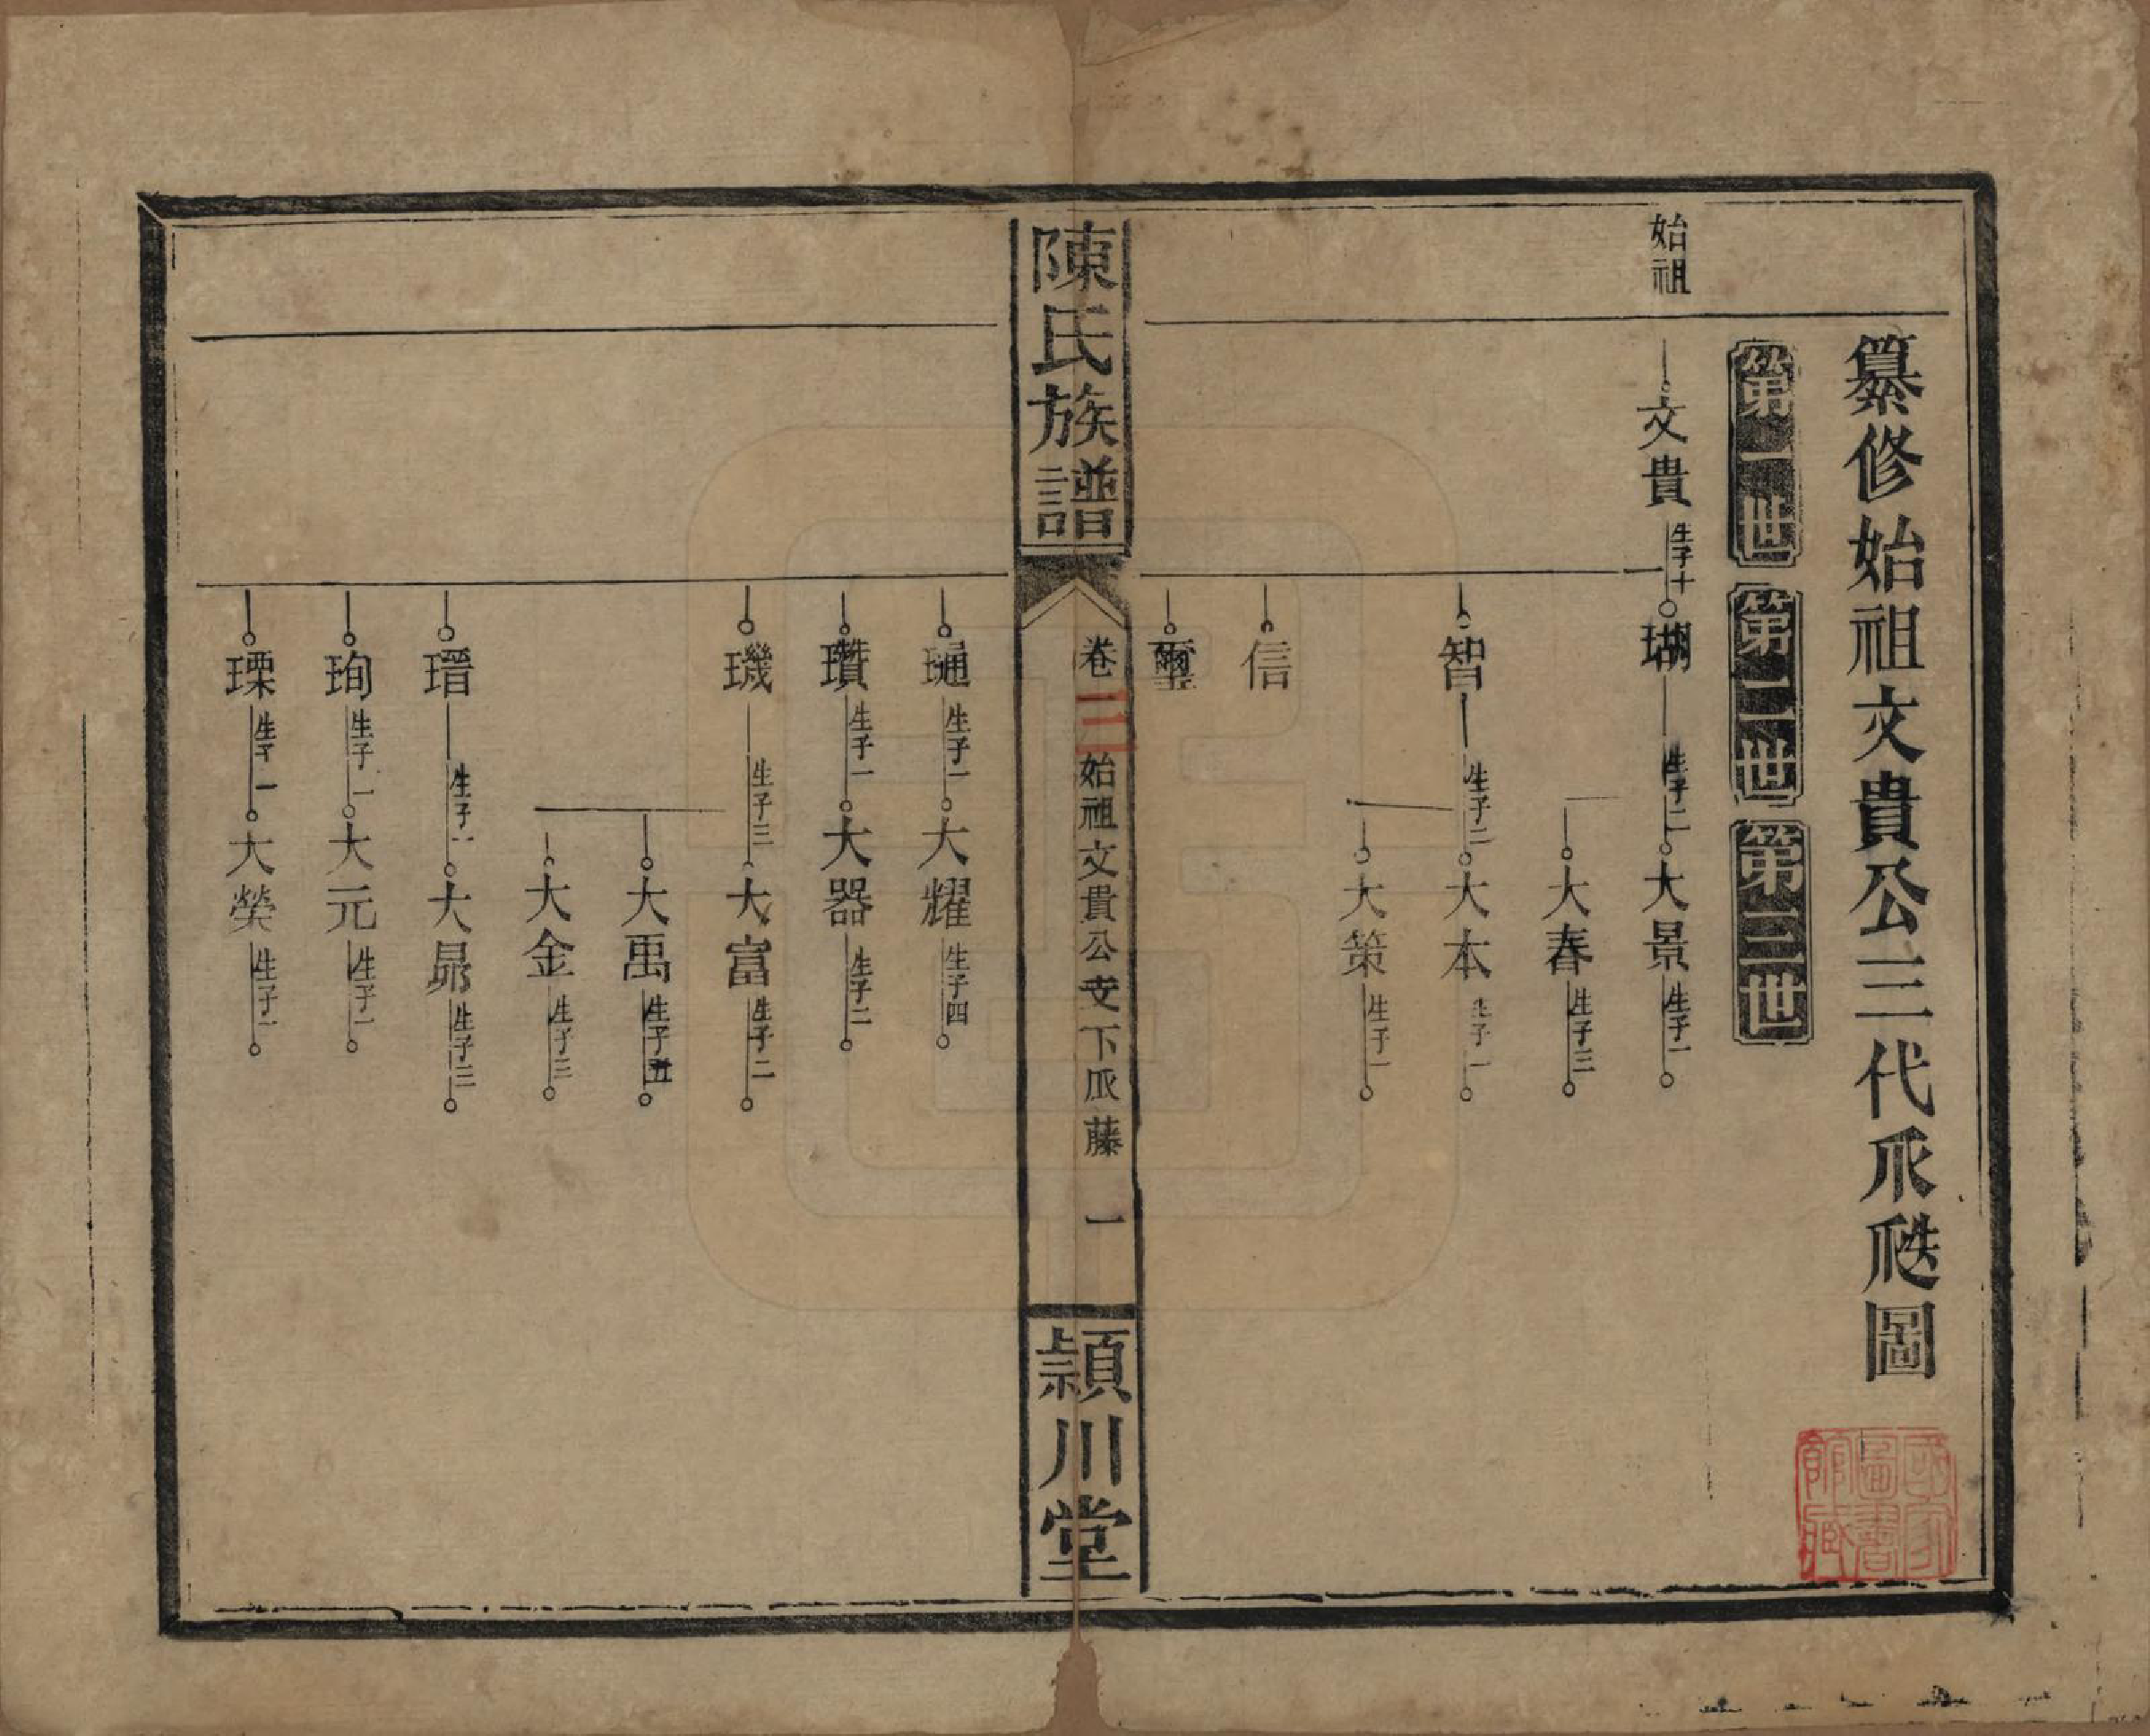 纂修始祖文貴公三代𠂢瓞圖
第一世
第二世
第三世
始祖
文貴
生子十
瑚
生子二
大景
生子一
大春
生子三
智
生子二
大本
生子一
大策
生子一
信
璽
陳氏族譜
卷三
始祖文貴公支下𠂢藤
一
頴川堂
生子一
大耀
生子四
瓚
生子一
大器
生子二
璣
生子三
大富
生子二
大禹
生子五
大金
生子三
瑨
生子一
大晜
生子三
珣
生子一
大元
生子一
瑮
生子一
大榮
生子一
國家圖書館藏